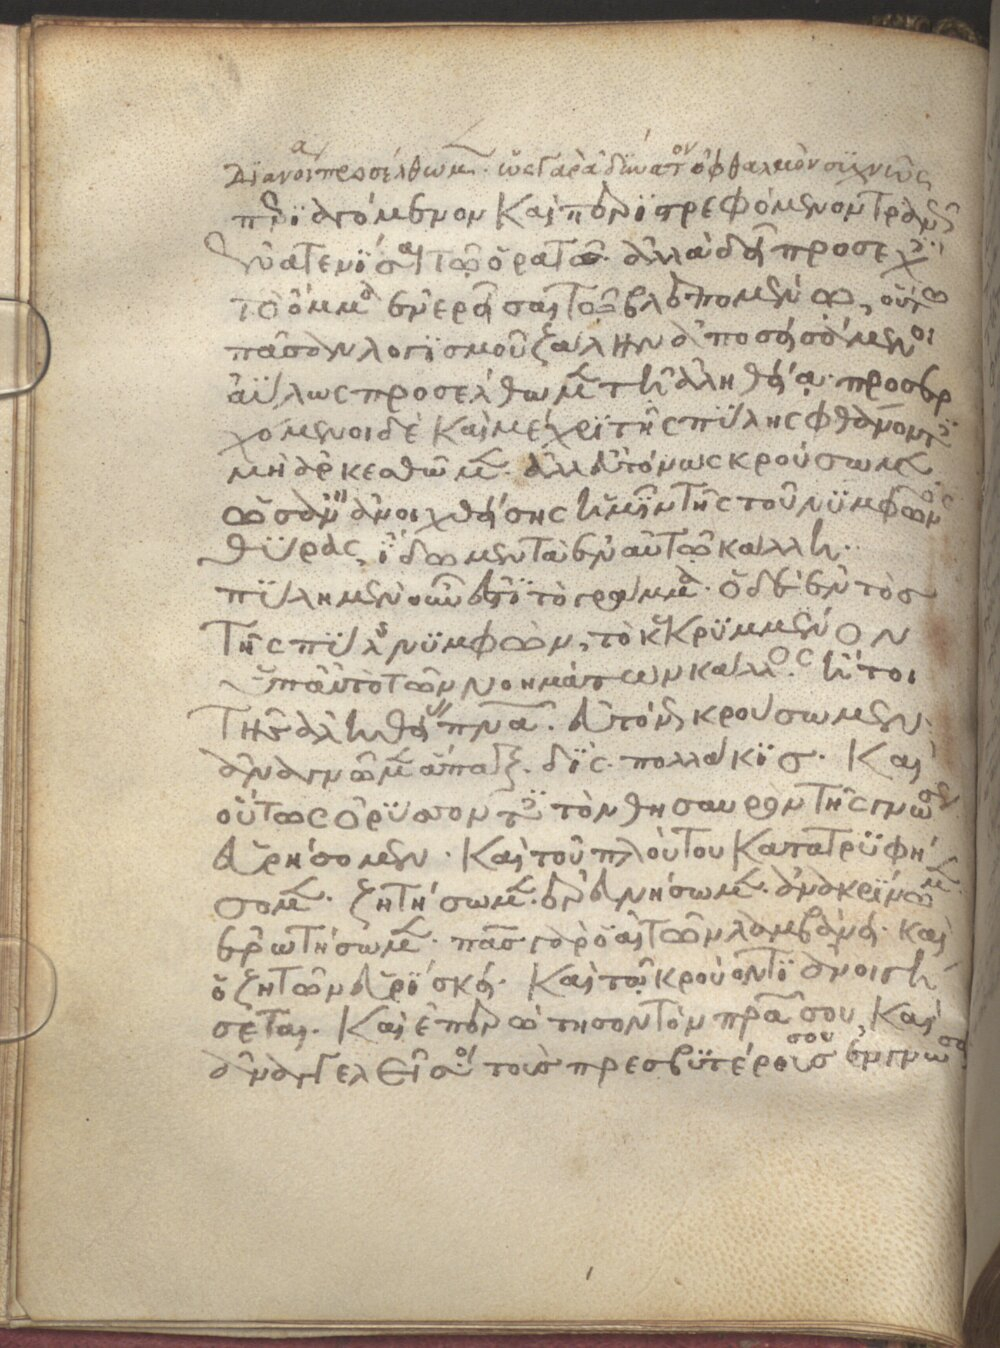 διανοίᾳ προσέλθωμεν· ὥσπερ ἀδύνατον ὀφθαλμὸν συχνῶς
περιαγόμενον καὶ περιτρεφόμενον τρανῶς
ἐνατενίσαι τῷ ὁρατῷ· ἀλλὰ δεῖ προσέχειν
τὸ ὄμμα ἐνερεῖσαι τῷ βλεπομένῳ, οὕτω
πᾶσαν λογισμοῦ ζάλην ἀποσεισάμενοι
ἀΰλως προσέλθωμεν τῇ ἀληθείᾳ· προσερ
χόμενοι δὲ καὶ μέχρι τῆς πύλης φθάνοντες
μὴ ἀρκεσθῶμεν· ἀλλ' εὐτόνως κρούσωμεν
ὡς ἂν ἀνοιχθείσης ἡμῖν τῆς τοῦ νυμφῶνος
θύρας, ἴδωμεν τὰ ἐν αὐτῷ κάλλη·
πύλη μὲν οὖν ἐστὶ τὸ γράμμα· ὁ δὲ ἐντὸς
τῆς πύλης νυμφών, τὸ κεκρυμμένον
ὑπ' αὐτὸ τῶν νοημάτων κάλλος ἤτοι
τῆς ἀληθείας πνεῦμα· εὐτόνως κρούσωμεν·
ἀναγνῶμεν ἅπαξ· δίς· πολλάκις· καὶ
οὕτως ὀρύσσοντες τὸν θησαυρὸν τῆς γνώσεως
εὑρήσομεν· καὶ τοῦ πλούτου κατατρυφή
σομεν· ζητήσωμεν· ἐρευνήσωμεν· ἀνακρίνωμεν·
ἐρωτήσωμεν· πᾶς γὰρ ὁ αἰτῶν λαμβάνει· καὶ
ὁ ζητῶν εὑρίσκει· καὶ τῷ κρούοντι ἀνοιγή
σεται· καὶ ἐπερώτησον τὸν πατέρα σου, καὶ
ἀναγγελεῖ σοι τοὺς πρεσβυτέρους σου ἐν γνώσει